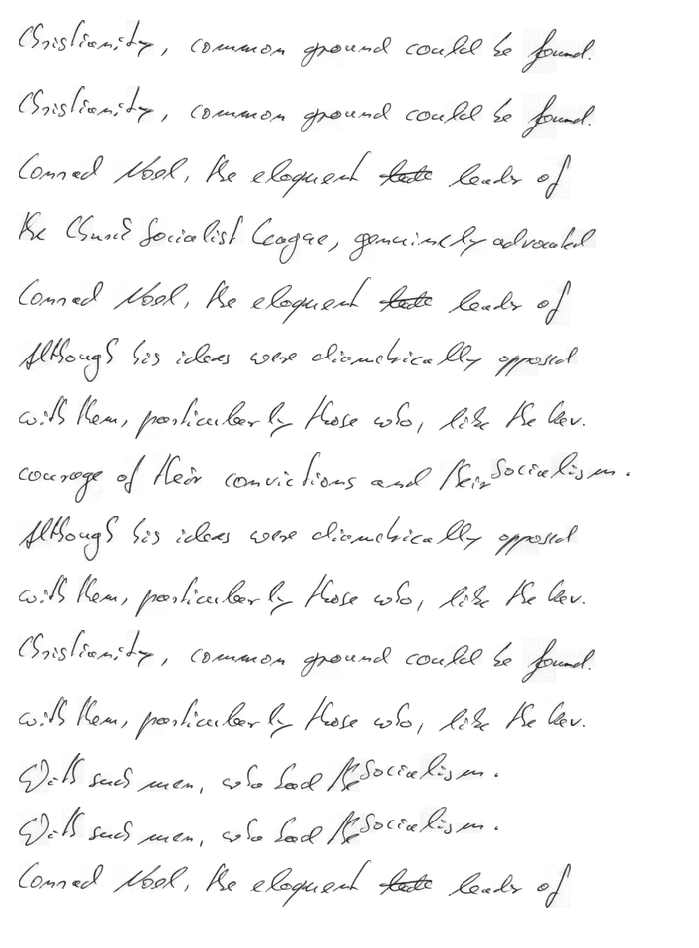 Christianity, common ground could be found.
Christianity, common ground could be found.
Conrad Noel, the eloquent leader of
the Church Socialist League, genuinely advocated
Conrad Noel, the eloquent leader of
Although his ideas were diametrically opposed
with them, particularly those who, like the Rev.
courage of their convictions and their Socialism.
Although his ideas were diametrically opposed
with them, particularly those who, like the Rev.
Christianity, common ground could be found.
with them, particularly those who, like the Rev.
With such men, who had the Socialism.
With such men, who had the Socialism.
Conrad Noel, the eloquent leader of